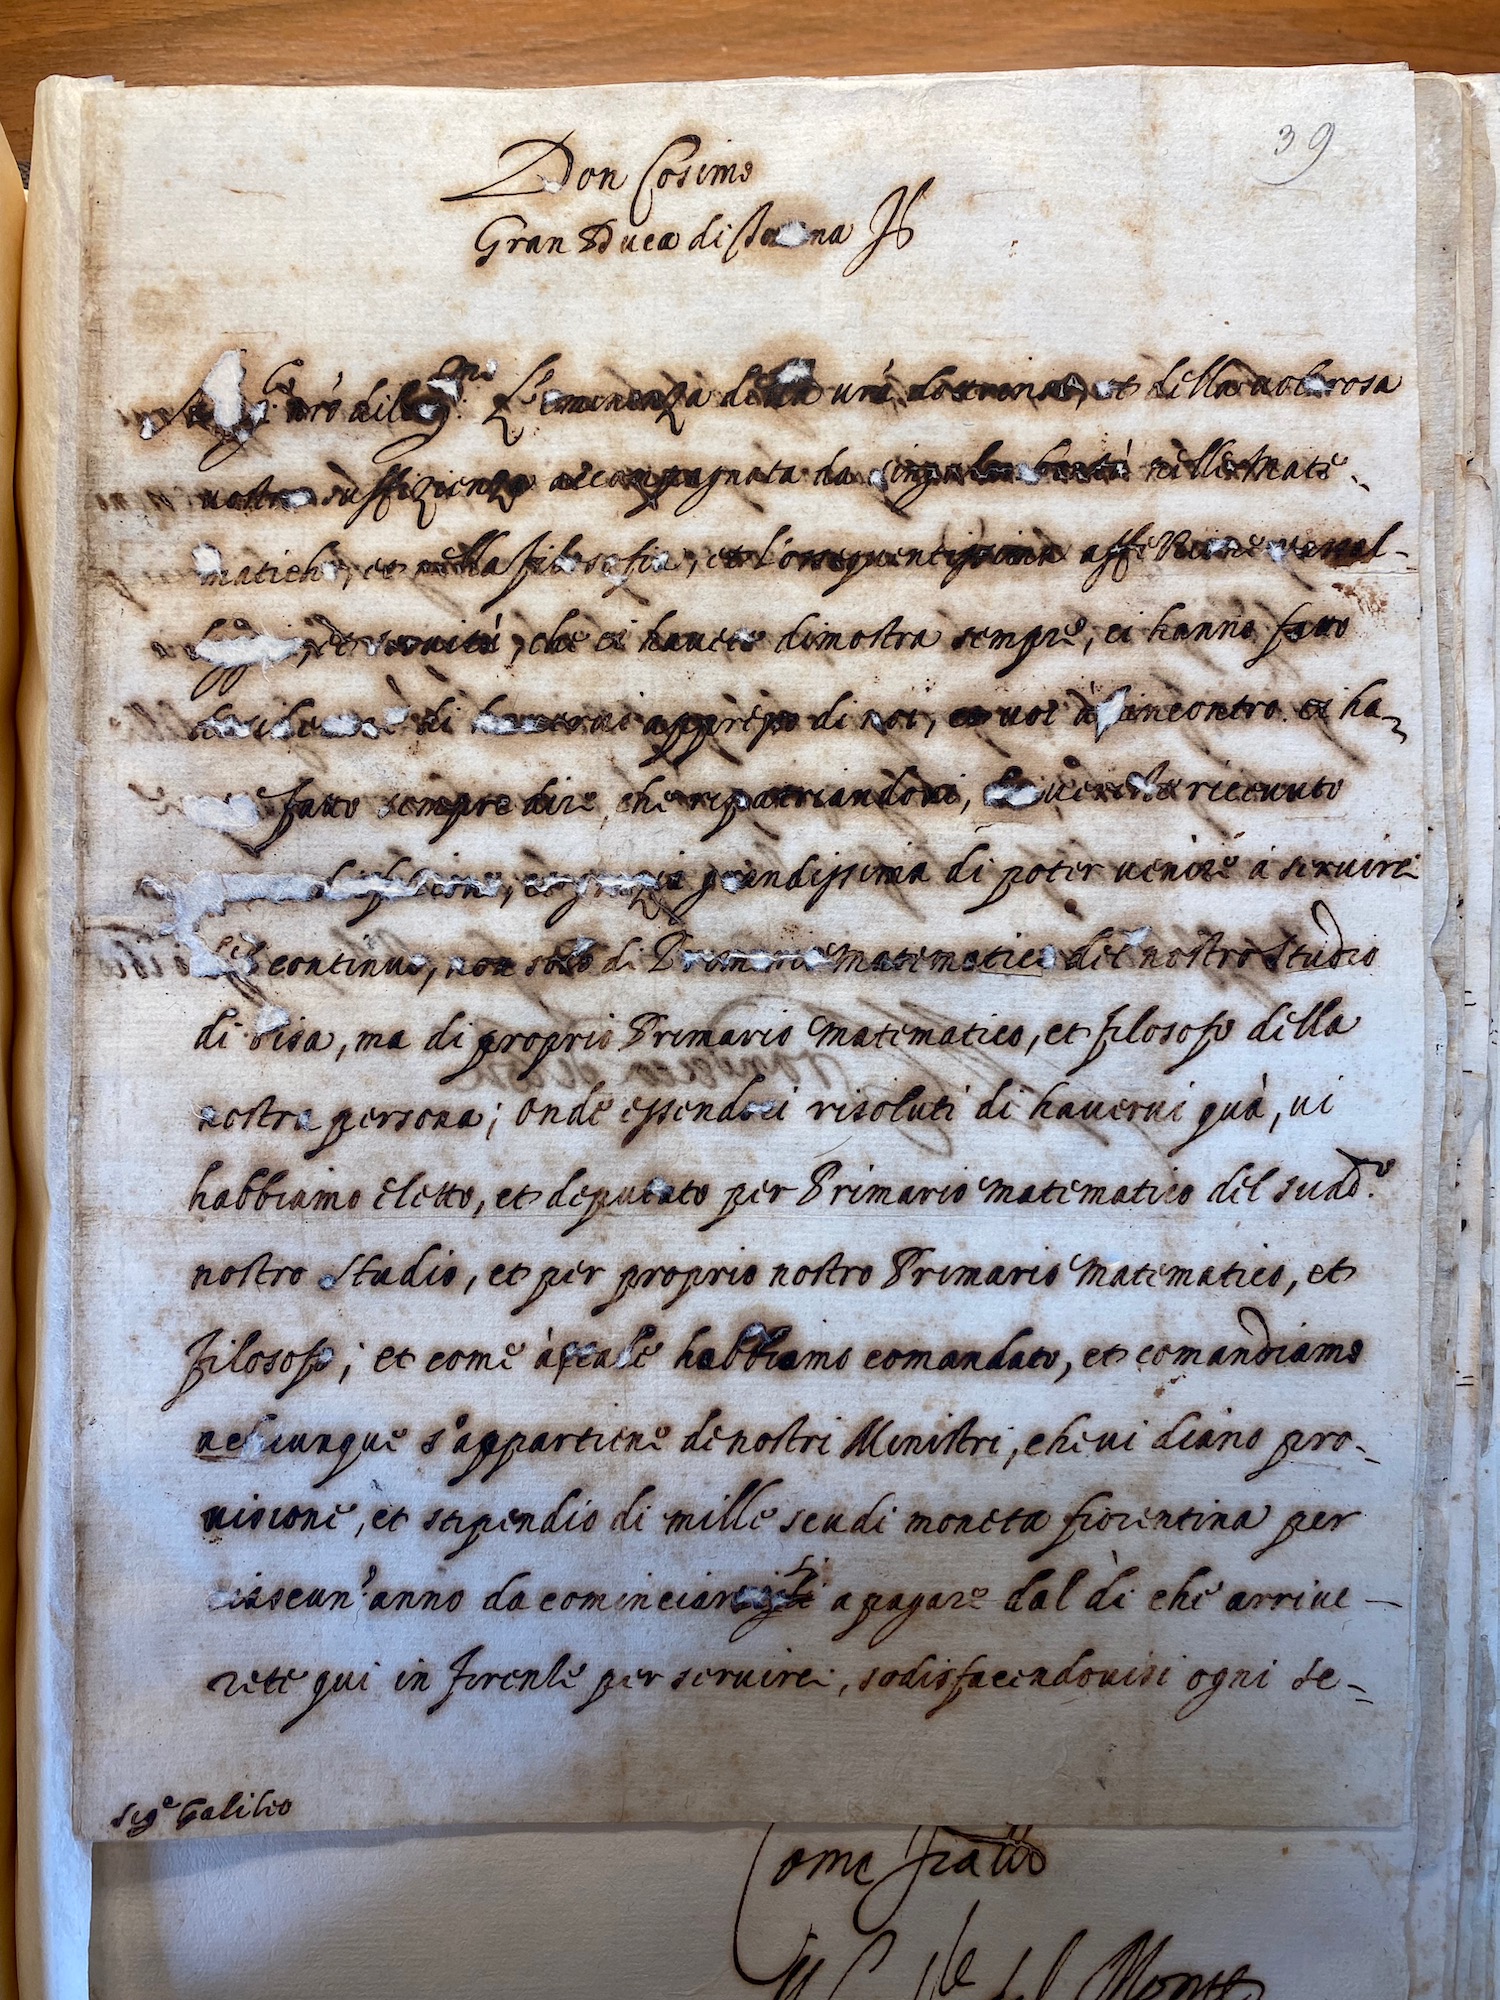 39
Don Cosimo
Gran Duca di na
nrõ dil.mo L'eminenza della vrã dottrina, et della valorosa
vostra suffizienza accompagnata da singolar bontà nelle Mate-
matiche, et nella filosofia, et l'ossequentissima affezione vassal-
et servitù, che ci havete dimostra sempre, ci hanno fatto
desiderare di havervi appresso di noi, et voi à rincontro ci ha-
fatto sempre dire, che ripatriandovi, havereste ricevuto
et grazia grandissima di poter venire à servirci
di continuo, non solo di Primario Matematico del nostro Studio
di Pisa, ma di proprio Primario Matematico, et filosofo della
nostra persona; onde essendoci risoluti di havervi quà, vi
habbiamo eletto, et deputato per Primario Matematico del sudd.o
nostro Studio, et per proprio nostro Primario Matematico, et
filosofo; et come à tale habbiamo comandato, et comandiamo
a chiunque s'appartiene de nostri Ministri, che vi diano pro-
visione, et stipendio di mille scudi moneta fiorentina per
ciascun'anno da cominciar a pagare dal dì che arrive-
rete qui in Firenze per servirci, sodisfacendovisi ogni se-
Sig.e Galileo
Come fratello
Il Car.le del Monte